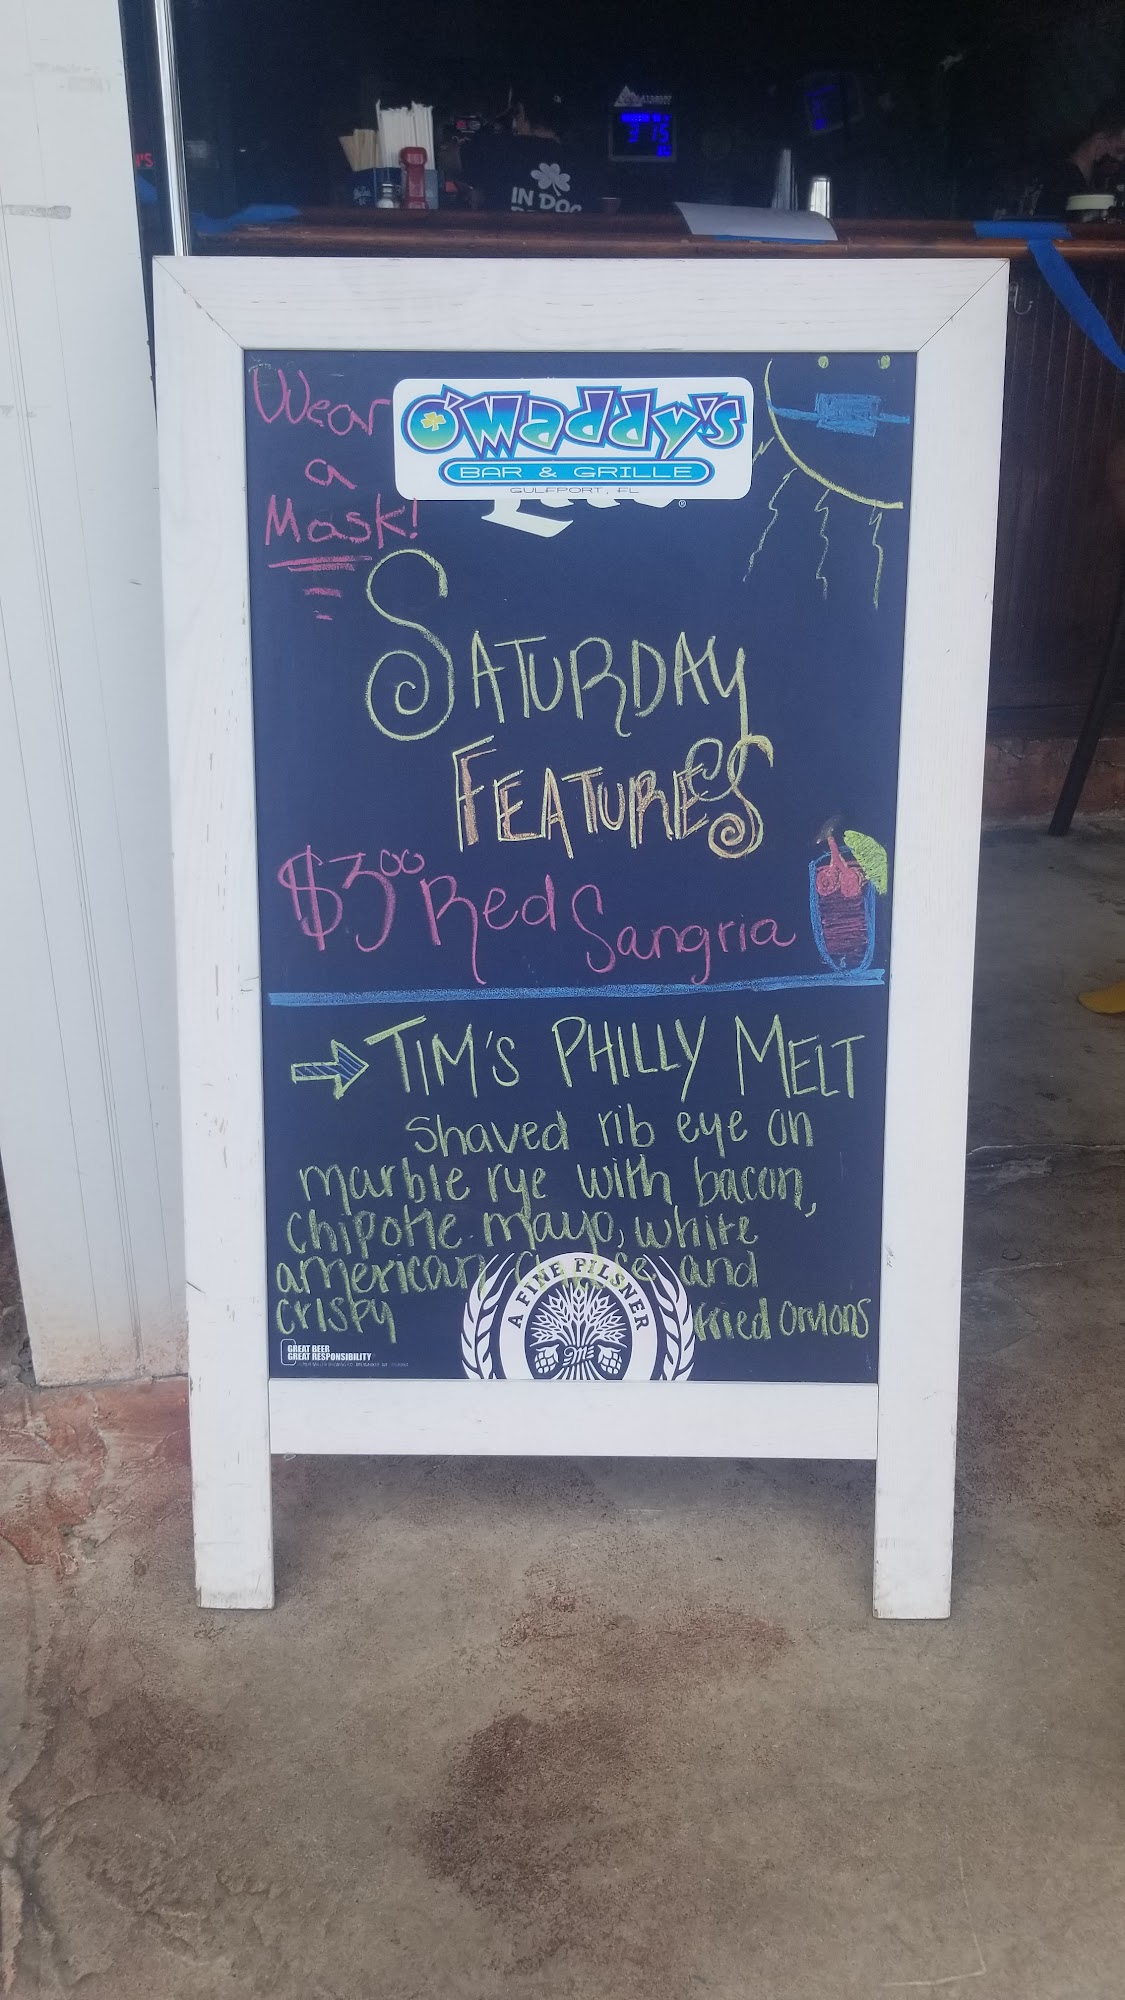 3 15
IN DOG
Wear
a
Mask!
O'Maddy's
BAR & GRILLE
GULFPORT, FL
SATURDAY
FEATURES
$3.00 Red Sangria
TIM'S PHILLY MELT
shaved rib eye on
marble rye with bacon,
chipotle mayo, white
american cheese and
crispy fried onions
A FINE PILSNER
GREAT BEER
GREAT RESPONSIBILITY